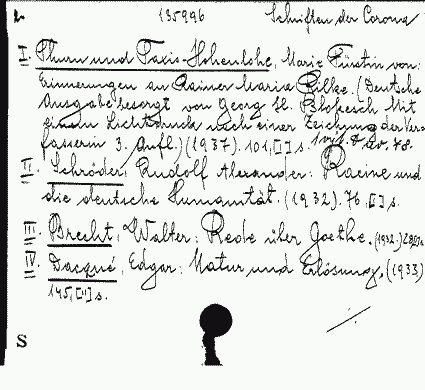 135996 Schriften der Corona
I. Thurn und Taxis-Hohenlohe, Marie Fürstin von:
Erinnerungen an Rainer Maria Rilke. (Deutsche
Ausgabe besorgt von Georg H. Blokesch Mit
einem Lichtdruck nach einer Zeichnung der Ver-
fasserin 3. Aufl.) (1937). 101, [1] s.
II. Schröder, Rudolf Alexander: Racine und
die deutsche Humanität. (1932). 76, [1] s.
III. Brecht, Walter: Rede über Goethe. (1932)
IV. Dacqué, Edgar: Natur und Erlösung. (1933)
145, [1] s.
S